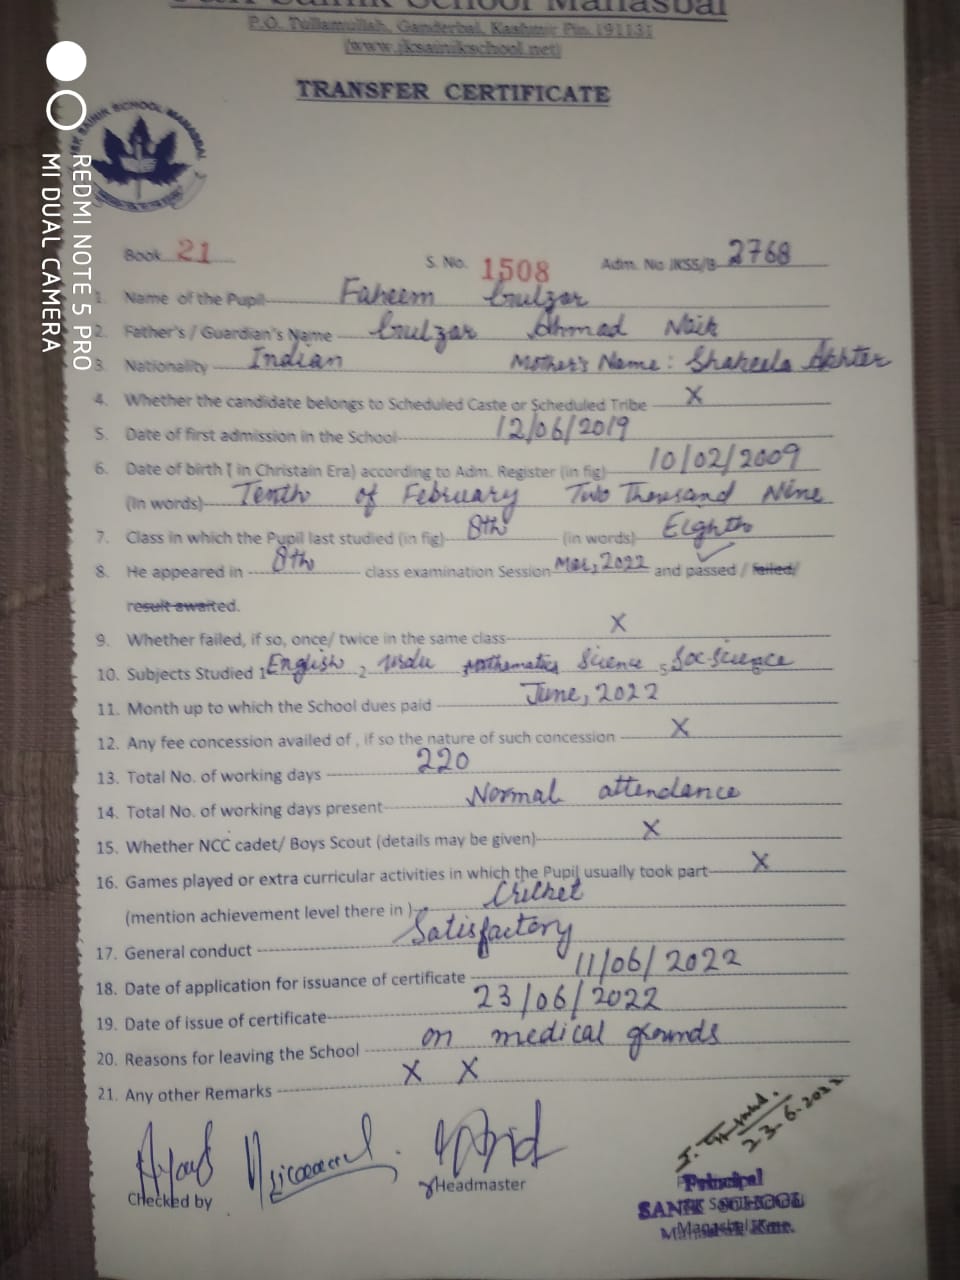 Sainik School Manasbal
P.O. Tullamullah, Ganderbal, Kashmir Pin. 191131
(www.jksainikschool.net)
TRANSFER CERTIFICATE
SAINIK SCHOOL MANASBAL
REDMI NOTE 5 PRO
MI DUAL CAMERA
Book 21 S. No. 1508 Adm. No JKSS/B- 2768
1. Name of the Pupil Faheem Gulzar
2. Father's / Guardian's Name Gulzar Ahmad Naik
3. Nationality Indian Mother's Name: Shakeela Akhter
4. Whether the candidate belongs to Scheduled Caste or Scheduled Tribe X
5. Date of first admission in the School 12/06/2019
6. Date of birth ( in Christain Era) according to Adm. Register (in fig) 10/02/2009
(In words) Tenth of February Two Thousand Nine
7. Class in which the Pupil last studied (in fig) 8th (in words) Eighth
8. He appeared in 8th class examination Session Mar, 2022 and passed / failed/
result awaited.
9. Whether failed, if so, once/ twice in the same class X
10. Subjects Studied 1 English 2 Urdu Mathematics Science 5 Soc. Science
11. Month up to which the School dues paid June, 2022
12. Any fee concession availed of , if so the nature of such concession X
13. Total No. of working days 220
14. Total No. of working days present Normal attendance
15. Whether NCC cadet/ Boys Scout (details may be given) X
16. Games played or extra curricular activities in which the Pupil usually took part X
(mention achievement level there in ) Cricket
17. General conduct Satisfactory
18. Date of application for issuance of certificate 11/06/2022
19. Date of issue of certificate 23/06/2022
20. Reasons for leaving the School on medical grounds
21. Any other Remarks X X
23.6.2022
Checked by Headmaster
Principal
SANIK SCHOOL
Manasbal Kmr.